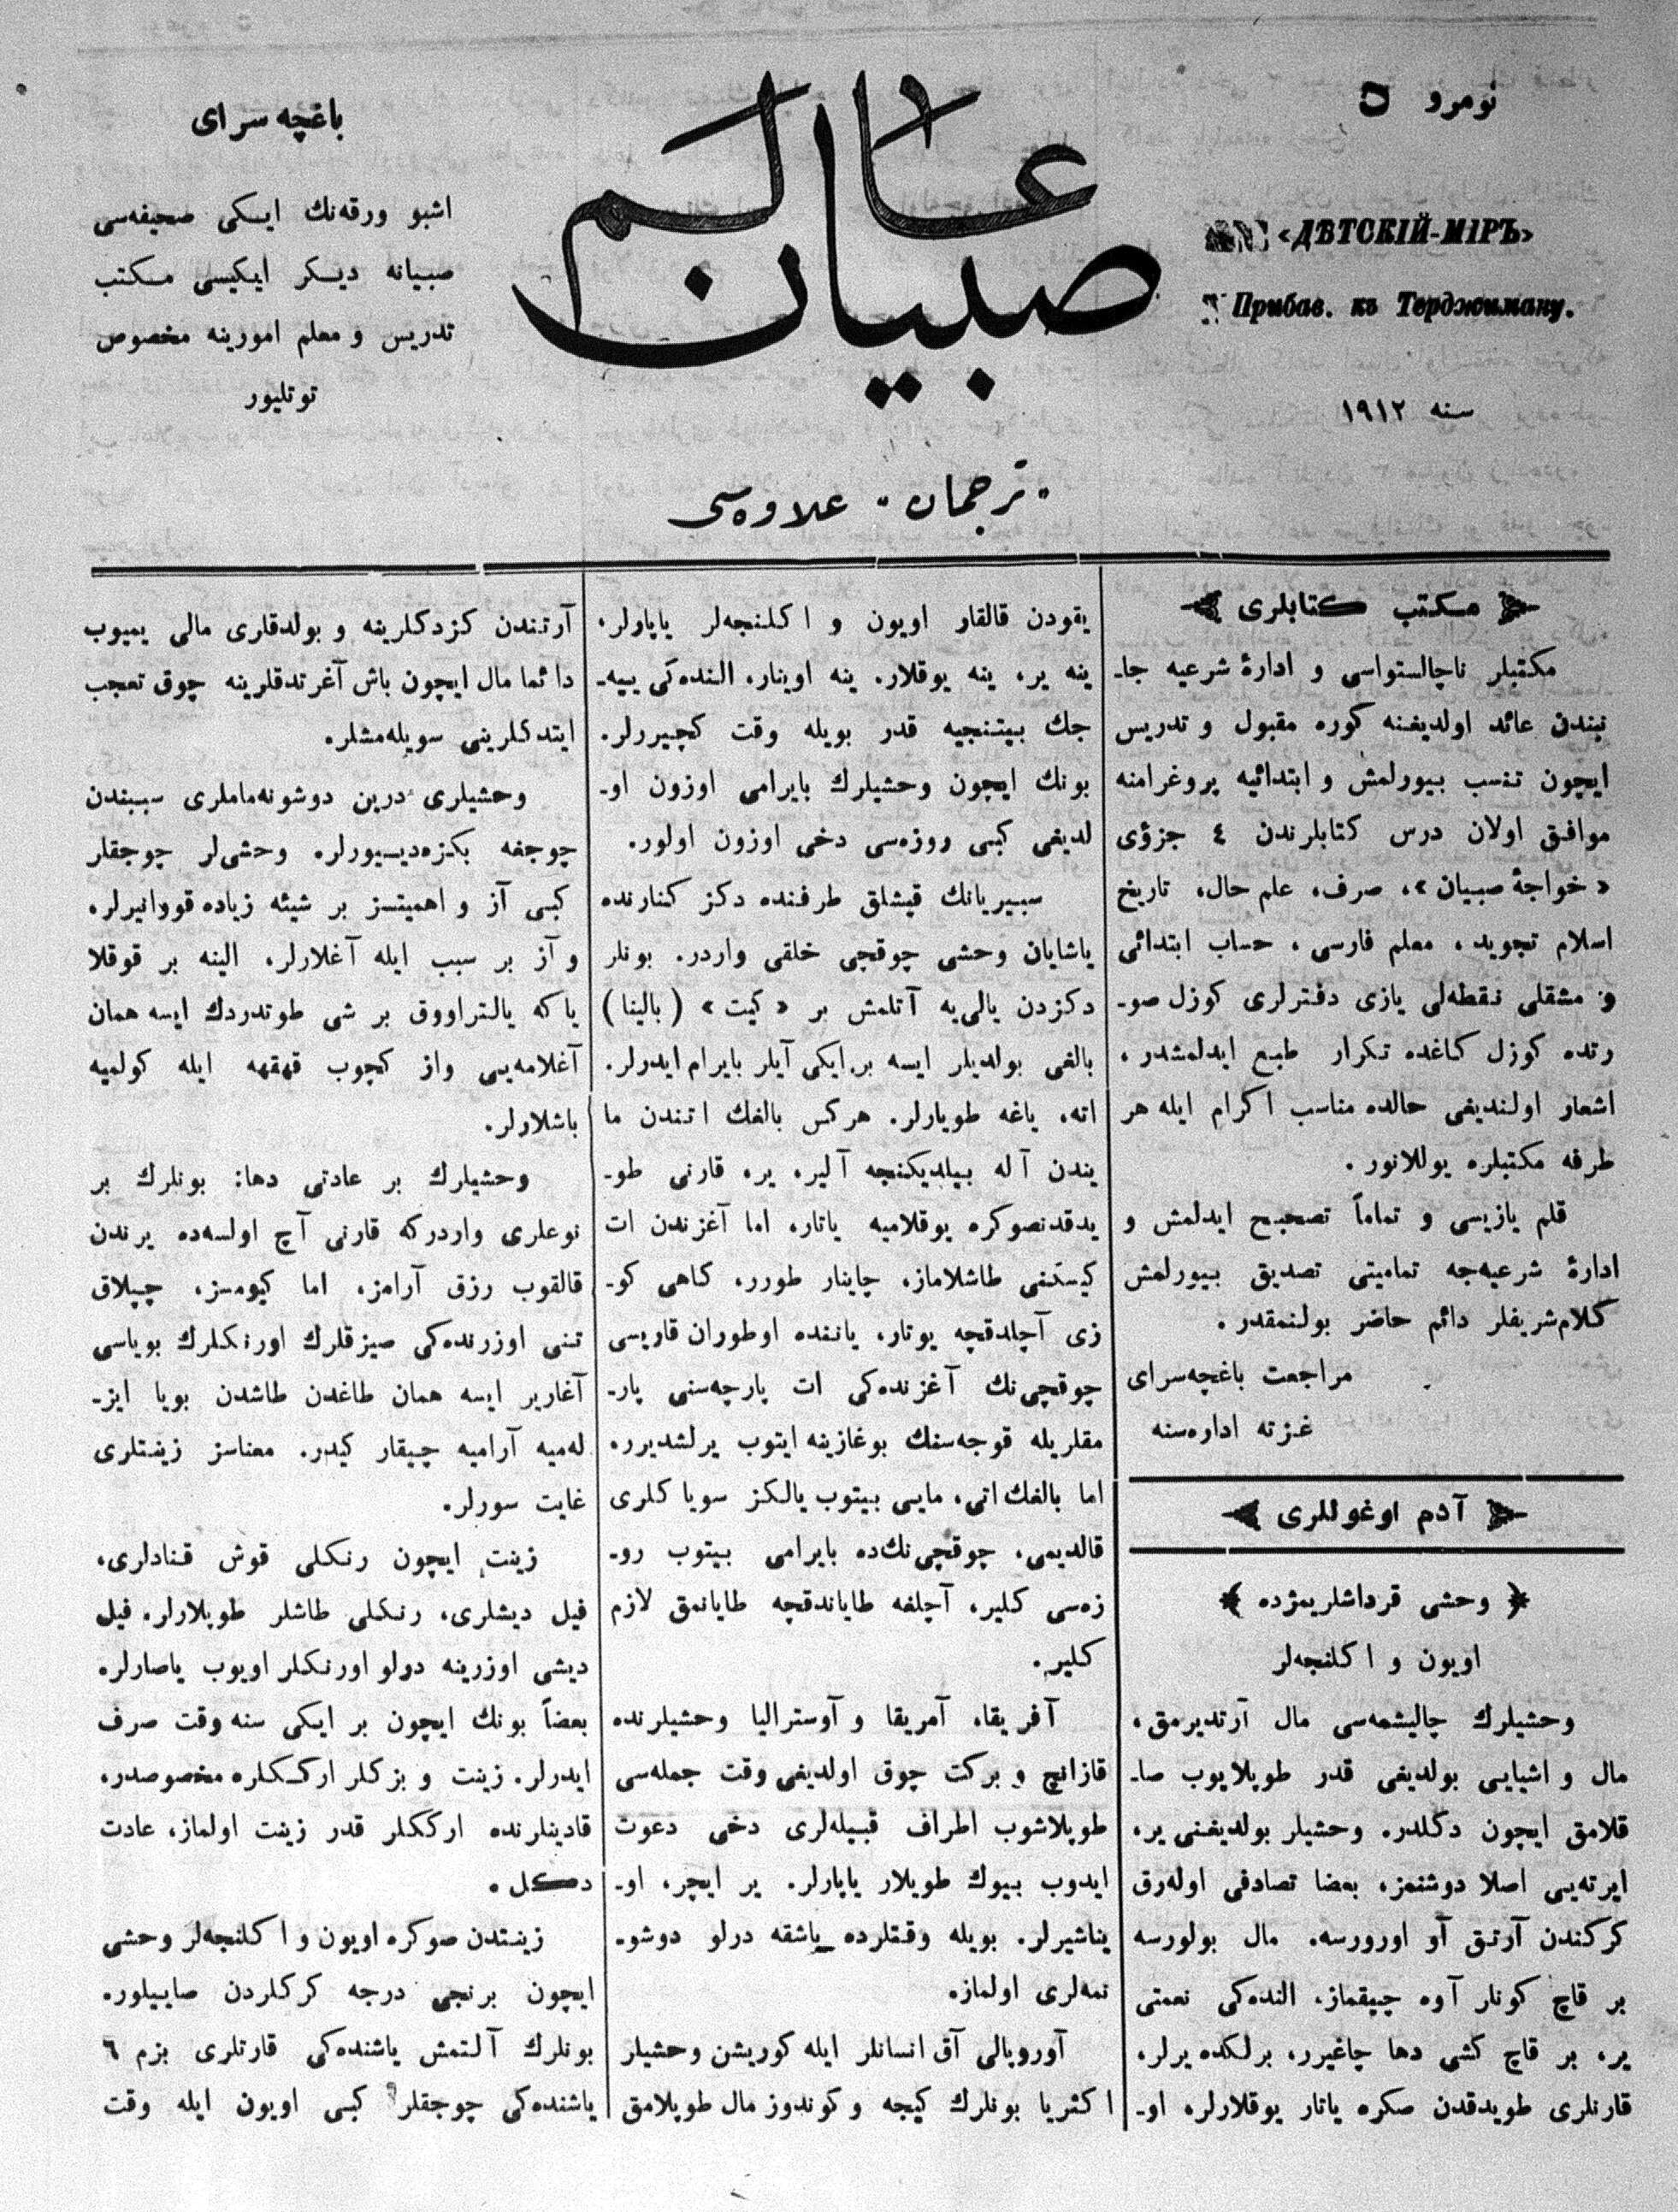 نومرو ٥
«ДѢТСКІЙ-МІРЪ»
Прибав. къ Терджиману.
سنه ١٩١٢
عالم
صبيان
باغچه سرای
اشبو ورقه‌نك ايكی صحيفه‌سی
صبيانه ديكر ايكيسی مكتب
تدريس و معلم امورينه مخصوص
توتليور
„ترجمان“ علاوه‌سی
مكتب كتابلری
مكتبلر ناچالستواسی و ادارۀ شرعيه جا-
نبندن عائد اولديغنه كوره مقبول و تدريس
ايچون تنسب بيورلمش و ابتدائيه پروغرامنه
موافق اولان درس كتابلرندن ٤ جزؤی
«خواجۀ صبيان»، صرف، علم حال، تاريخ
اسلام تجويد، معلم فارسی، حساب ابتدائی
و مشقلی نقطه‌لی يازی دفترلری كوزل صو-
رتده كوزل كاغده تكرار طبع ايدلمشدر،
اشعار اولنديغی حالده مناسب اكرام ايله هر
طرفه مكتبلره يوللانور.
قلم يازيسی و تماماً تصحيح ايدلمش و
ادارۀ شرعيه‌جه تماميتی تصديق بيورلمش
كلام‌شريفلر دائم حاضر بولنمقدر.
مراجعت باغچه‌سرای
غزته اداره‌سنه
آدم اوغوللری
وحشی قرداشلريمزده
اويون و اكلنجه‌لر
وحشيلرك چاليشمه‌سی مال آرتديرمق،
مال و اشيايی بولديغی قدر طوپلايوب صا-
قلامق ايچون دكلدر. وحشيلر بولديغنی ير،
ايرته‌يی اصلا دوشنمز، بعضا تصادفی اوله‌رق
كركندن آرتق آو اورورسه، مال بولورسه
بر قاچ كونار آوه چيقماز، النده‌كی نعمتی
ير، بر قاچ كشی دها چاغيرر، برلكده يرلر،
قارنلری طويدقدن صكره ياتار يوقلارلر، او-
يقودن قالقار اويون و اكلنجه‌لر ياپارلر،
ينه ير، ينه يوقلار، ينه اوينار، النده‌كی ييه-
جك بيتنجيه قدر بويله وقت كچيررلر.
بونك ايچون وحشيلرك بايرامی اوزون او-
لديغی كبی روزه‌سی دخی اوزون اولور.
سبيريانك قيشلق طرفنده دكز كنارنده
ياشايان وحشی چوقچی خلقی واردر. بونلر
دكزدن يالی‌يه آتلمش بر «كيت» (بالينا)
بالغی بولديلر ايسه بر ايكی آيلر بايرام ايدرلر.
اته، ياغه طويارلر. هركس بالغك اتندن ما
يندن آله بيلديكنجه آلير، ير، قارنی طو-
يدقدنصوكره يوقلاميه ياتار، اما آغزندن ات
كيسكنی طاشلاماز، چاينار طورر، كاهی كو-
زی آچلدقچه يوتار، ياننده اوطوران قاريسی
چوقچی‌نك آغزنده‌كی ات پارچه‌سنی پار-
مقلريله قوجه‌سنك بوغازينه ايتوب يرلشديرر.
اما بالغك اتی، مايی بيتوب يالكز سوياكلری
قالديمی، چوقچی‌نك‌ده بايرامی بيتوب رو-
زه‌سی كلير، آچلغه طاياندقچه طايانمق لازم
كلير.
آفريقا، آمريقا و آوستراليا وحشيلرنده
قازانچ و بركت چوق اولديغی وقت جمله‌سی
طوپلاشوب اطراف قبيله‌لری دخی دعوت
ايدوب بيوك طويلار ياپارلر. ير ايچر، او-
يناشيرلر. بويله وقتلرده باشقه درلو دوشو-
نمه‌لری اولماز.
آوروپالی آق انسانلر ايله كوريشن وحشيلر
اكثريا بونلرك كيجه و كوندوز مال طوپلامق
آرتندن كزدكلرينه و بولدقلری مالی يميوب
دائما مال ايچون باش آغرتدقلرينه چوق تعجب
ايتدكلرينی سويله‌مشلر.
وحشيلری درين دوشونه‌ماملری سببندن
چوجغه بكزه‌ديبورلر. وحشی‌لر چوجقلر
كبی آز و اهميتسز بر شيئه زياده قووانيرلر،
و آز بر سبب ايله آغلارلر. الينه بر قوقلا
ياكه يالتراووق بر شی طوتدردك ايسه همان
آغلامه‌يی واز كچوب قهقهه ايله كولميه
باشلارلر.
وحشيلرك بر عادتی دها: بونلرك بر
نوعلری واردركه قارنی آچ اولسه‌ده يرندن
قالقوب رزق آرامز، اما كيومسز، چپلاق
تنی اوزرنده‌كی صيزقلرك اورنكلرك بوياسی
آغارير ايسه همان طاغدن طاشدن بويا ايز-
له‌ميه آراميه چيقار كيدر. معناسز زينتلری
غايت سورلر.
زينت ايچون رنكلی قوش قنادلری،
فيل ديشلری، رنكلی طاشلر طوپلارلر. فيل
ديشی اوزرينه دولو اورنكلر اويوب ياصارلر.
بعضاً بونك ايچون بر ايكی سنه وقت صرف
ايدرلر. زينت و بزكلر ارككلره مخصوصدر،
قادينلرنده ارككلر قدر زينت اولماز، عادت
دكل.
زينتدن صوكره اويون و اكلنجه‌لر وحشی
ايچون برنجی درجه كركلردن صاييلور.
بونلرك آلتمش ياشنده‌كی قارتلری بزم ٦
ياشنده‌كی چوجقلر كبی اويون ايله وقت